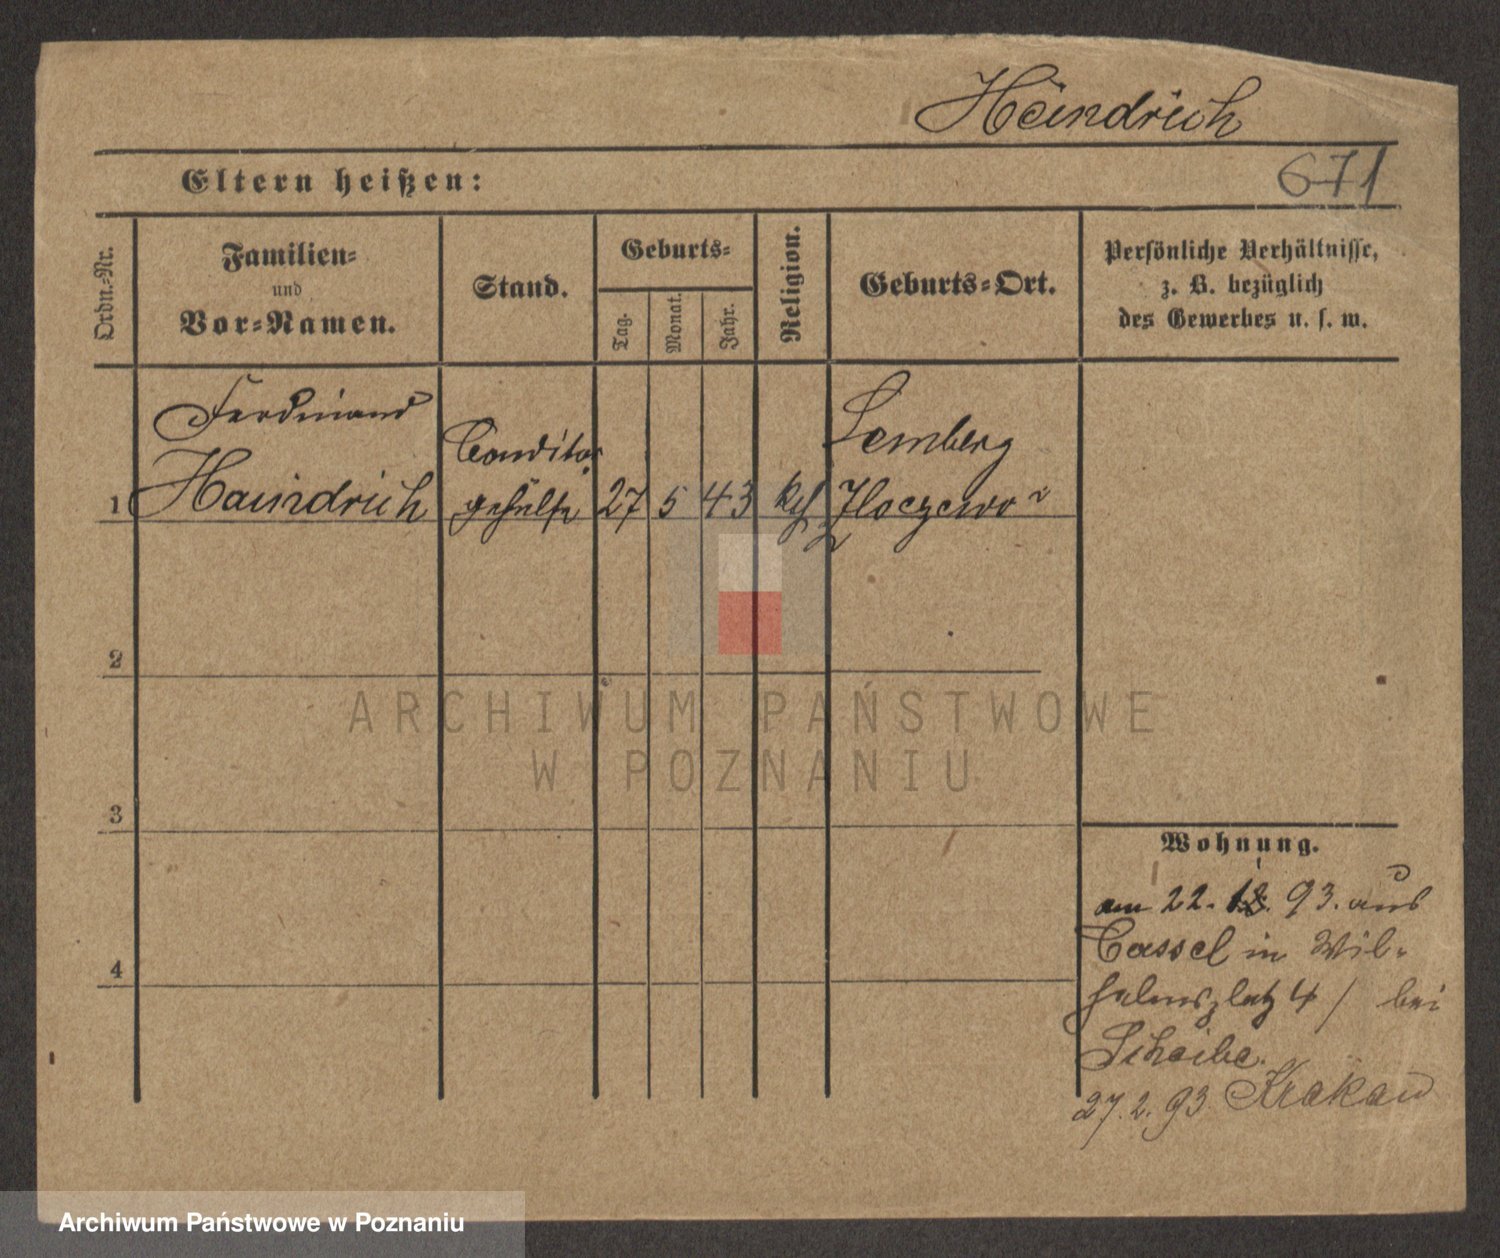 Heindrich
Eltern heißen:
671
Ordn.-Nr.
Familien-
und
Vor-Namen.
Stand.
Geburts-
Tag.
Monat.
Jahr.
Religion.
Geburts-Ort.
Persönliche Verhältnisse,
z. B. bezüglich
des Gewerbes u. s. w.
Ferdinand
Conditor
Lemberg
1 Haindrich gehülfe 27 5 43 kth
2
ARCHIWUM PAŃSTWOWE
W POZNANIU
3
Wohnung.
am 22. 93. aus
Cassel in Wil-
helmsplatz 4 / bei
4
Scheibe.
27.2.93 Krakau
Archiwum Państwowe w Poznaniu